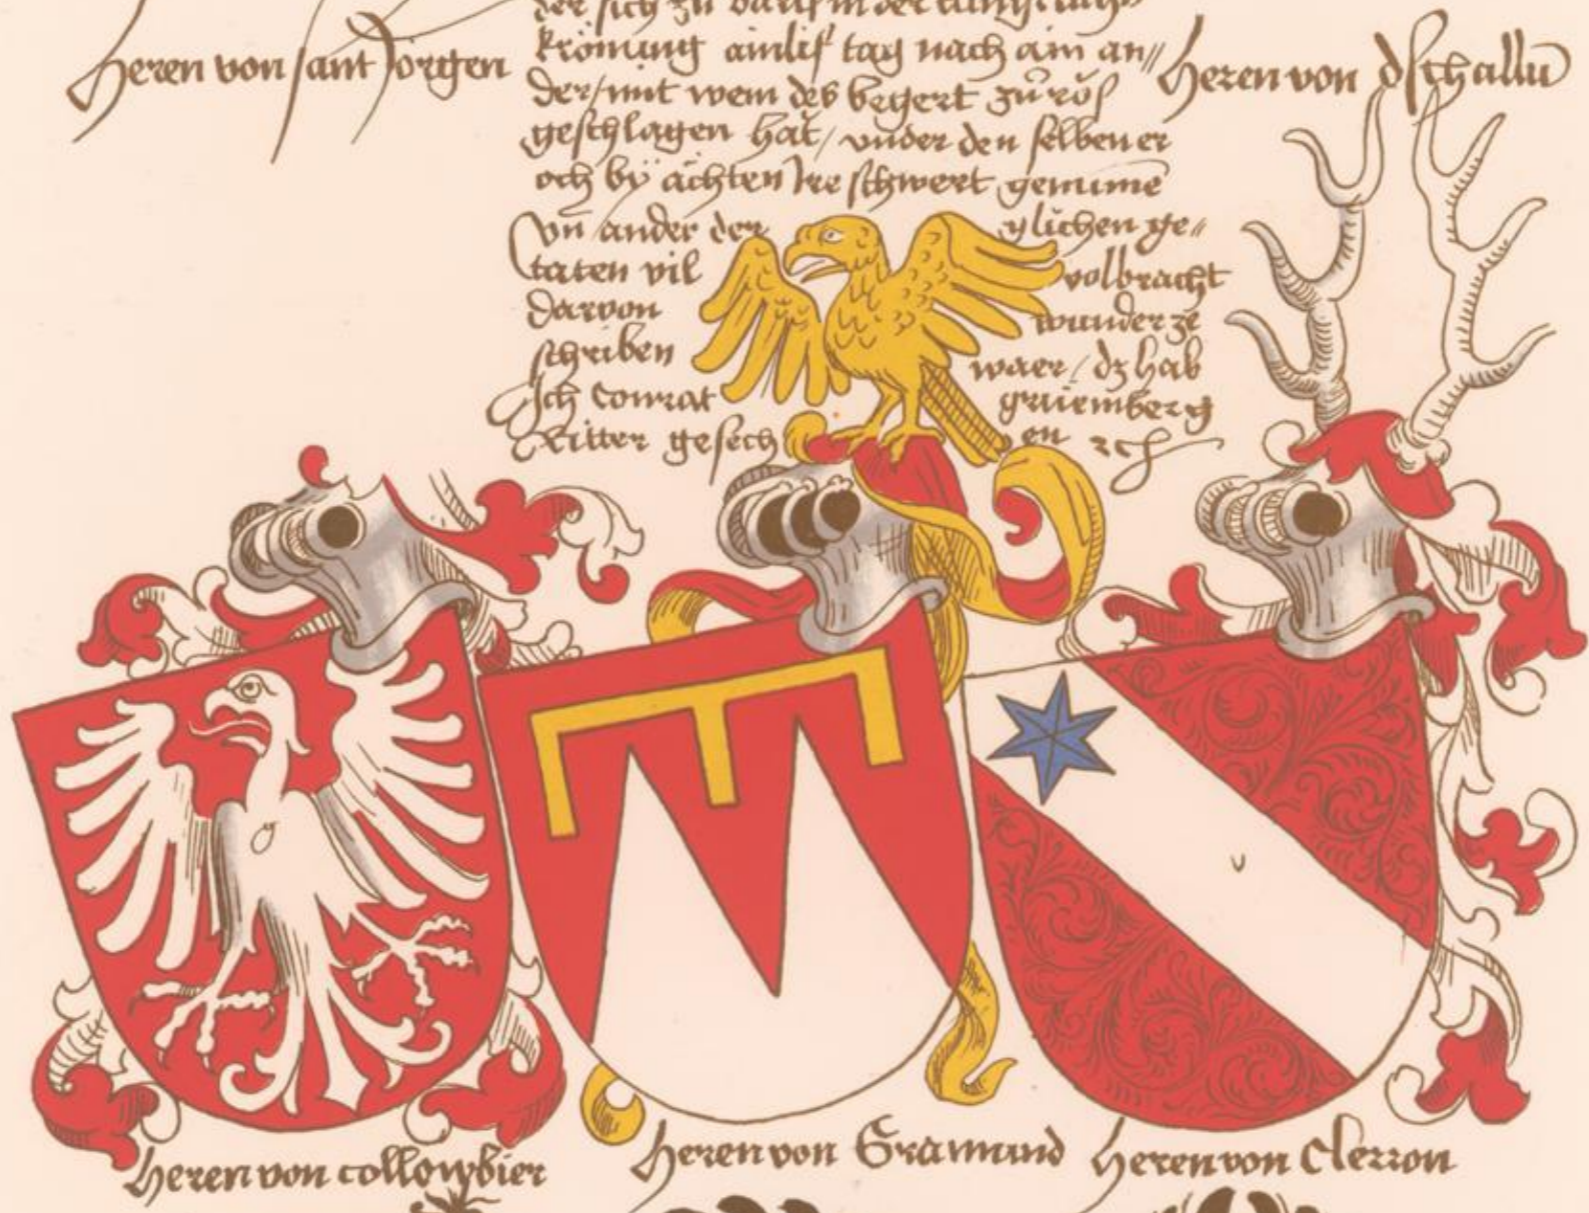 Heren von sant Jörgen
Heren von dschallū
der sich zu
krönung ainlif tag nach ain an//
der/mit wem des begert zu ros
geschlagen hat/ vnder den selben er
och by ächten Ire schwert genumē
Vn̄ ander der ylichen ge//
taten vil volbracht
darvon wunder ze
schriben waer/ dz hab
Ich Conrat grüemberg
Ritter gesechen
Heren von collowbier
Heren von Gramund
Heren von Clerron